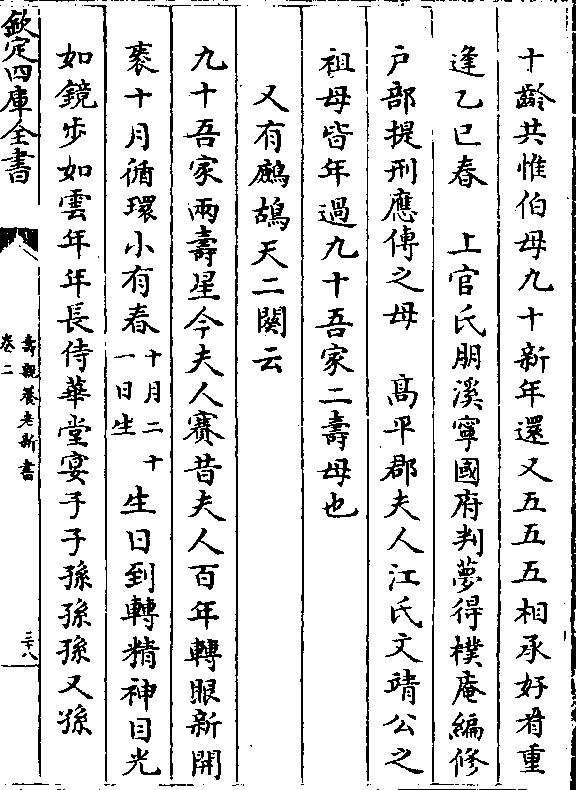 十齡共惟伯母九十新年還又五五五相承好㸔重
逢乙巳春　上官氏朋溪寧國府判夢得樸庵編修
户部提刑應傳之母　髙平郡夫人江氏文靖公之
祖母皆年過九十吾家二壽母也
又有鷓鴣天二闋云
九十吾家兩壽星今夫人賽昔夫人百年轉眼新開
袠十月循環小有春十月二十一日生生日到轉精神目光
如鏡步如雲年年長侍華堂宴子子孫孫孫又孫
欽定四庫全書
壽親養老新書
卷二
三十八